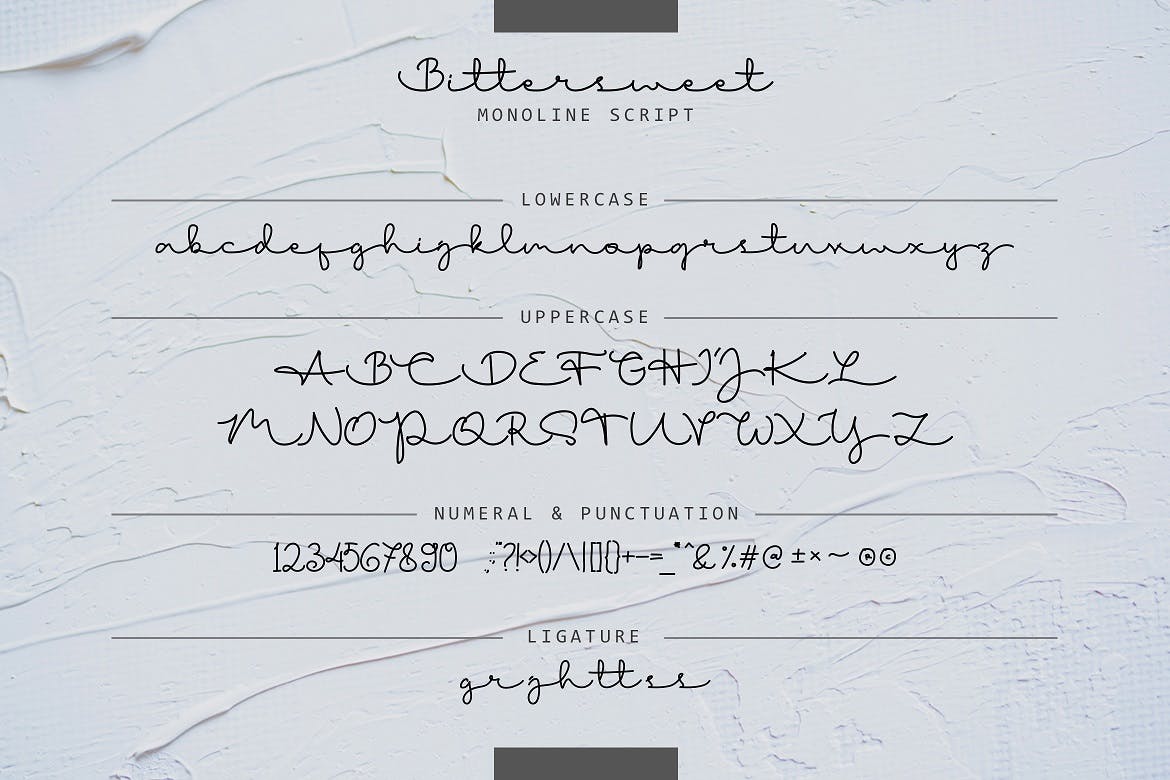 Bittersweet
MONOLINE SCRIPT
LOWERCASE
abcdefghijklmnopqrstuvwxyz
UPPERCASE
ABCDEFGHIJKL
MNOPQRSTUVWXYZ
NUMERAL & PUNCTUATION
1234567890 .,:;'"?!<>()/\|[]{}+-=_*^&%#@±×~®©
LIGATURE
grghttss